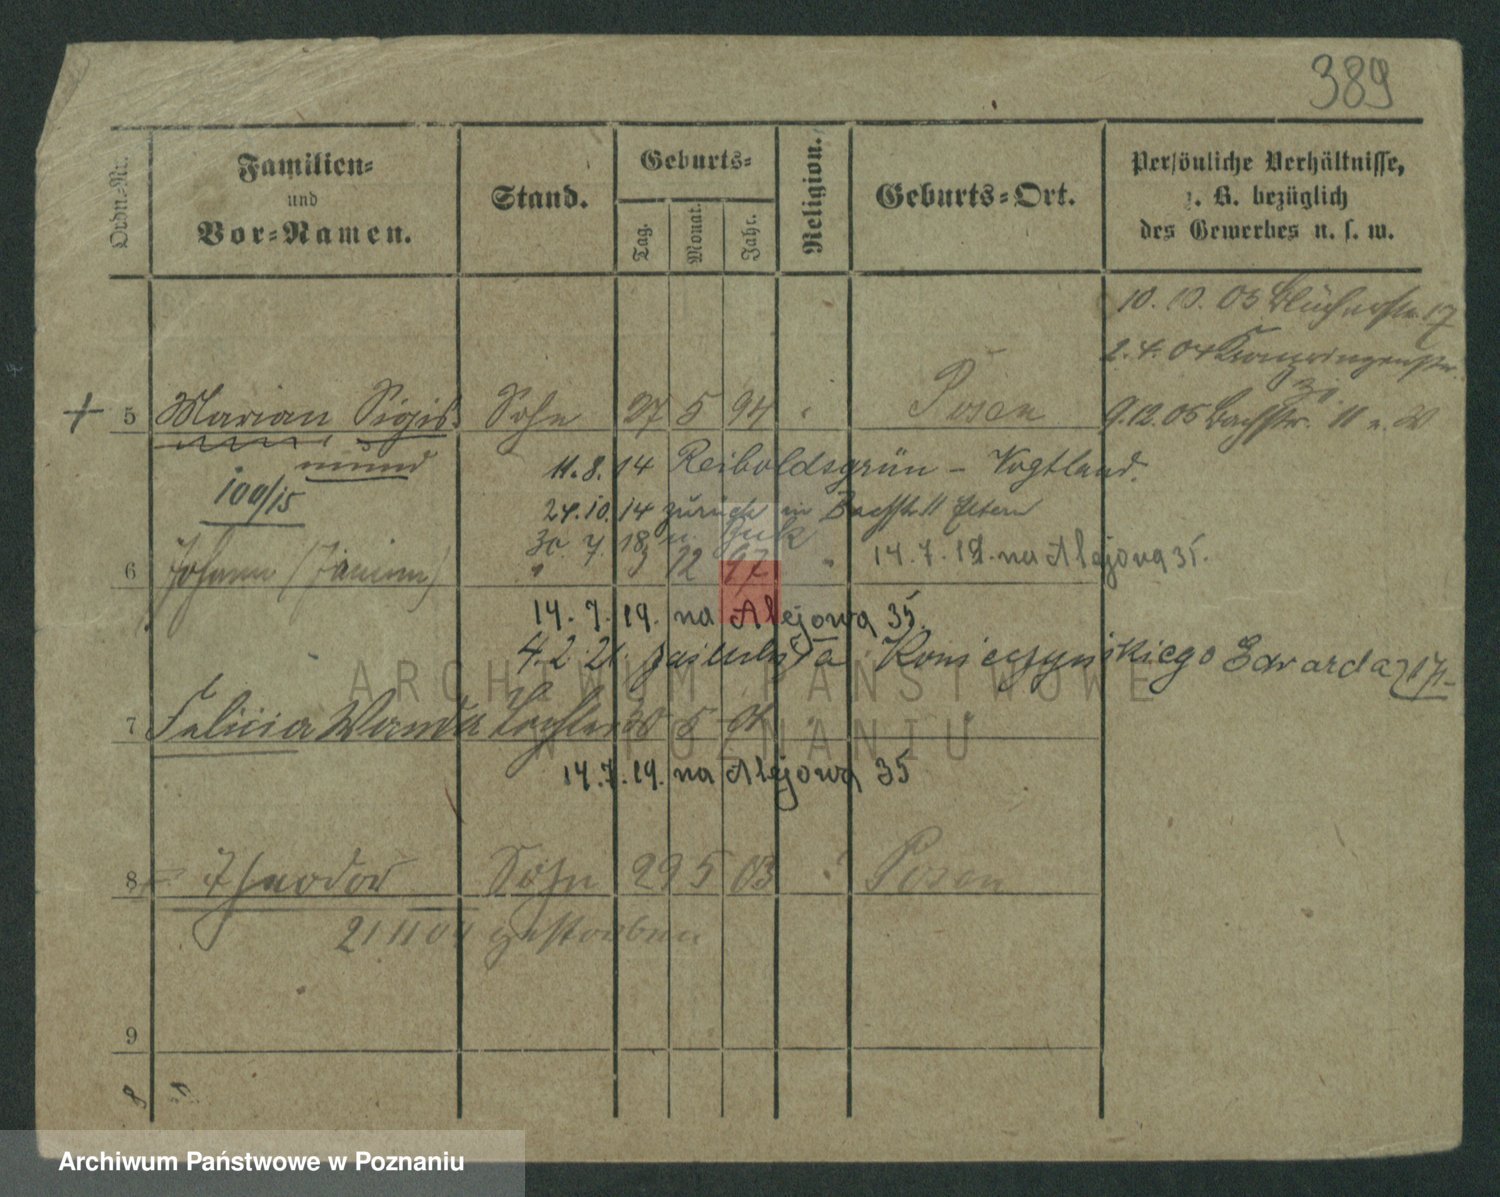 389
Ordn-Nr.
Familien-
und
Vor-Namen.
Stand.
Geburts-
Tag.
Monat.
Jahr.
Religion.
Geburts-Ort.
Persönliche Verhältnisse,
z. B. bezüglich
des Gewerbes u. s. w.
10. 10. 03 Blücherstr. 17
2. 4. 04 Kronprinzenstr.
+ 5 Marian Sigis- Sohn 27 5 94 Posen
9.12.05 Bachstr. 11
mund
11. 8. 14 Reiboldsgrün - Vogtland.
100/15
24. 10. 14 zurück in Bachstr. 11 Eltern
30. 7. 18
6 Johann (Janusz) " 3 12 97 " 14. 7. 19. na Alejową 35.
14. 7. 19. na Alejową 35.
4. 2. 21. Konieczyńskiego Edwarda
7 Felicia Wanda Tochter 30 5 "
14. 7. 19. na Alejową 35
8 Theodor Sohn 29 5 03 Posen
21 11 04 gestorben
9
8
ARCHIWUM PAŃSTWOWE
W POZNANIU
Archiwum Państwowe w Poznaniu